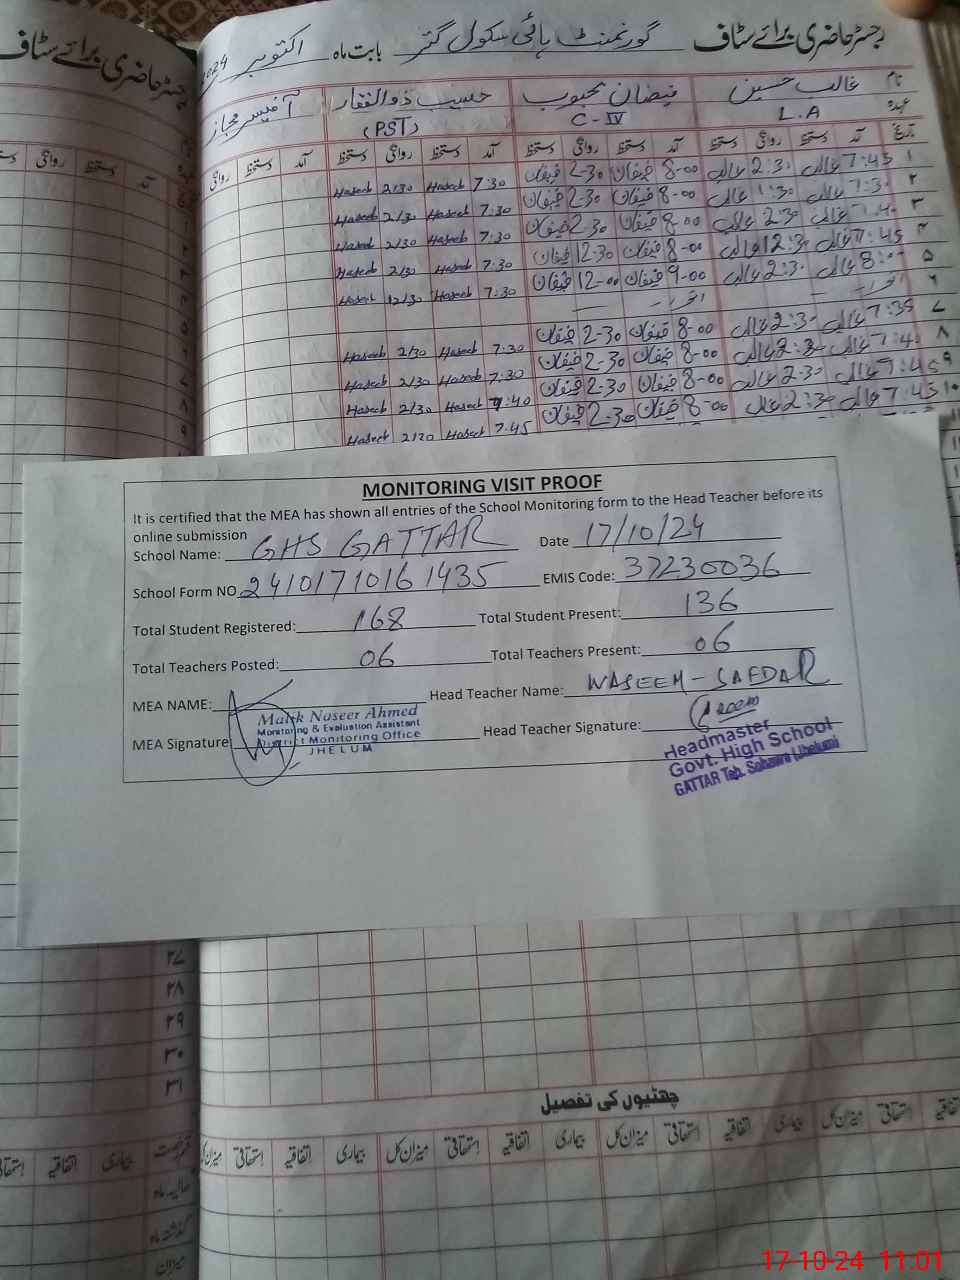 رجسٹر حاضری برائے سٹاف گورنمنٹ ہائی سکول گتر بابت ماہ اکتوبر 2024
رجسٹر حاضری برائے سٹاف
نام غالب حسین فیضان محبوب حسیب ذوالفقار آفیسر مجاز
عہدہ L.A C-IV (PST)
تاریخ آمد دستخط روانگی دستخط آمد دستخط روانگی دستخط آمد دستخط روانگی دستخط آمد دستخط روانگی
آمد دستخط روانگی دستخط
۱ 7:45 غالب 2:30 غالب 8-00 فیضان 2-30 فیضان 7:30 Haseeb 2/30 Haseeb
۲ 7:30 غالب 1:30 غالب 8-00 فیضان 2-30 فیضان 7:30 Haseeb 2/30 Haseeb
۳ 7:40 غالب 2:30 غالب 8-00 فیضان 2-30 فیضان 7:30 Haseeb 2/30 Haseeb
۴ 7:45 غالب 12:30 غالب 8-00 فیضان 12-30 فیضان 7:30 Haseeb 2/30 Haseeb
۵ 8:00 غالب 2:30 غالب 9-00 فیضان 12-00 فیضان 7:30 Haseeb 12/30 Haseeb
۶ اتوار اتوار
۷ 7:35 غالب 2:30 غالب 8-00 فیضان 2-30 فیضان 7:30 Haseeb 2/30 Haseeb
۸ 7:40 غالب 2:30 غالب 8-00 فیضان 2-30 فیضان 7:30 Haseeb 2/30 Haseeb
۹ 7:45 غالب 2:30 غالب 8-00 فیضان 2-30 فیضان 7:40 Haseeb 2/30 Haseeb
۱۰ 7:45 غالب 2:30 غالب 8-00 فیضان 2-30 فیضان 7:45 Haseeb 2/30 Haseeb
MONITORING VISIT PROOF
It is certified that the MEA has shown all entries of the School Monitoring form to the Head Teacher before its
online submission
School Name: GHS GATTAR Date 17/10/24
School Form NO 24101710161435 EMIS Code: 37230036
Total Student Registered: 168 Total Student Present: 136
Total Teachers Posted: 06 Total Teachers Present: 06
MEA NAME: Head Teacher Name: WASEEM-SAFDAR
MEA Signature Head Teacher Signature:
Malik Naseer Ahmed
Monitoring & Evaluation Assistant
District Monitoring Office
JHELUM
Headmaster
Govt. High School
GATTAR Teh. Sohawa (Jhelum)
۲۷
۲۸
۲۹
۳۰
۳۱
چھٹیوں کی تفصیل
اتفاقیہ استحقاقی میزان کل بیماری اتفاقیہ استحقاقی میزان کل بیماری اتفاقیہ استحقاقی میزان کل بیماری اتفاقیہ استحقاقی میزان کل
بیماری اتفاقیہ استحقاقی
حالیہ ماہ
گذشتہ ماہ
میزان
17-10-24 11:01